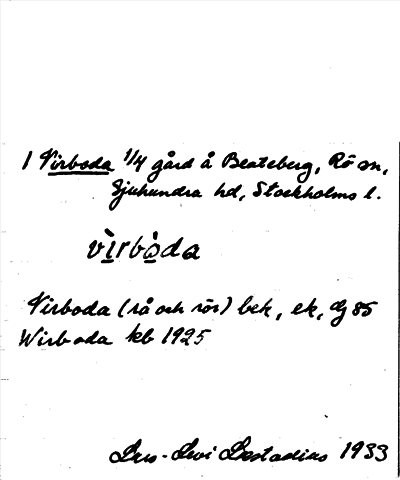 1 Virboda 1/4 gård å Beateberg, Rö sn,
Sjuhundra hd, Stockholms l.
vìrbòda
Virboda (rå och rör) bek, ek, dj 85
Wirboda kb 1925
Lars-Levi Læstadius 1933